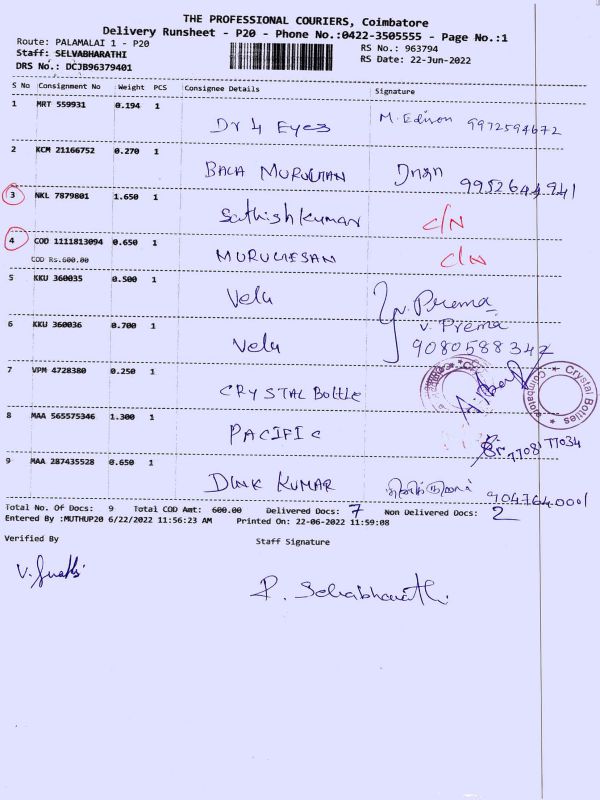 THE PROFESSIONAL COURIERS, Coimbatore
Delivery Runsheet - P20 - Phone No.:0422-3505555 - Page No.:1
Route: PALAMALAI 1 - P20 RS No.: 963794
Staff: SELVABHARATHI RS Date: 22-Jun-2022
DRS No.: DCJB96379401
S No Consignment No Weight PCS Consignee Details Signature
1 MRT 559931 0.194 1 Dr 4 Eyes M. Edison 9972594672
2 KCM 21166752 0.270 1 BALA MURUGAN 9952644941
3 NKL 7879801 1.650 1 Sathishkumar C/N
4 COD 1111813094 0.650 1 MURUGESAN C/N
COD Rs.600.00
5 KKU 360035 0.500 1 Velu V. Prema
V. Prema
6 KKU 360036 0.700 1 Velu 9080588347
7 VPM 4728380 0.250 1 CRYSTAL Bottle Crystal Bottles Coimbatore
8 MAA 565575346 1.300 1 PACIFIC
9 MAA 287435528 0.650 1 KUMAR 9047640001
Total No. Of Docs: 9 Total COD Amt: 600.00 Delivered Docs: 7 Non Delivered Docs: 2
Entered By :MUTHUP20 6/22/2022 11:56:23 AM Printed On: 22-06-2022 11:59:08
Verified By Staff Signature
P. Selvabharathi